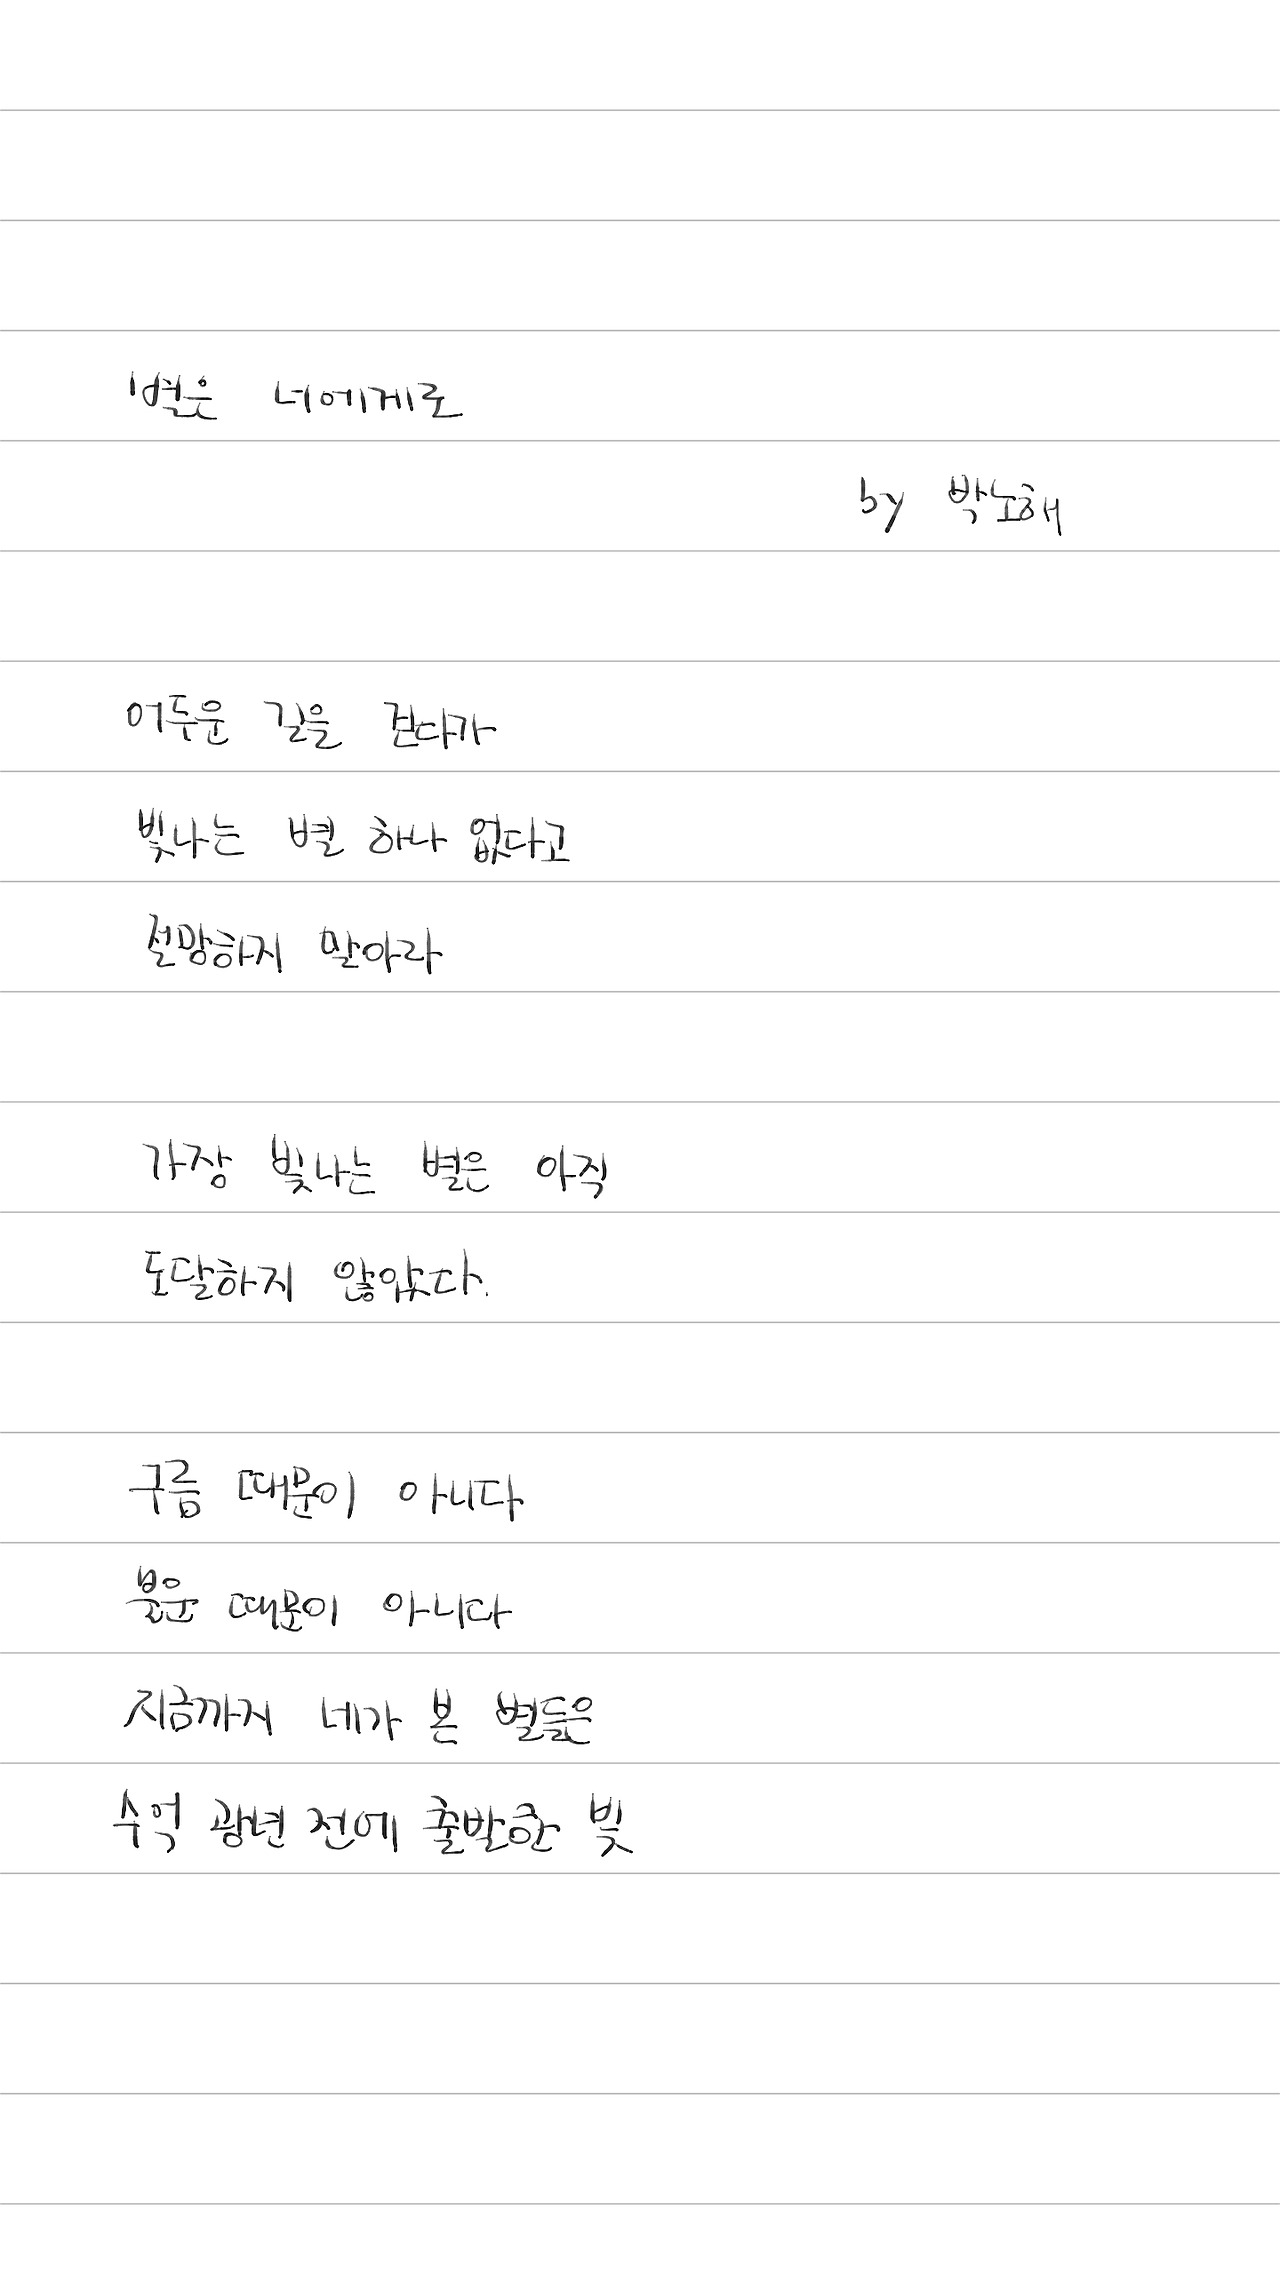 별은 너에게로
by 박노해
어두운 길을 걷다가
빛나는 별 하나 없다고
절망하지 말아라
가장 빛나는 별은 아직
도달하지 않았다.
구름 때문이 아니다
불운 때문이 아니다
지금까지 네가 본 별들은
수억 광년 전에 출발한 빛